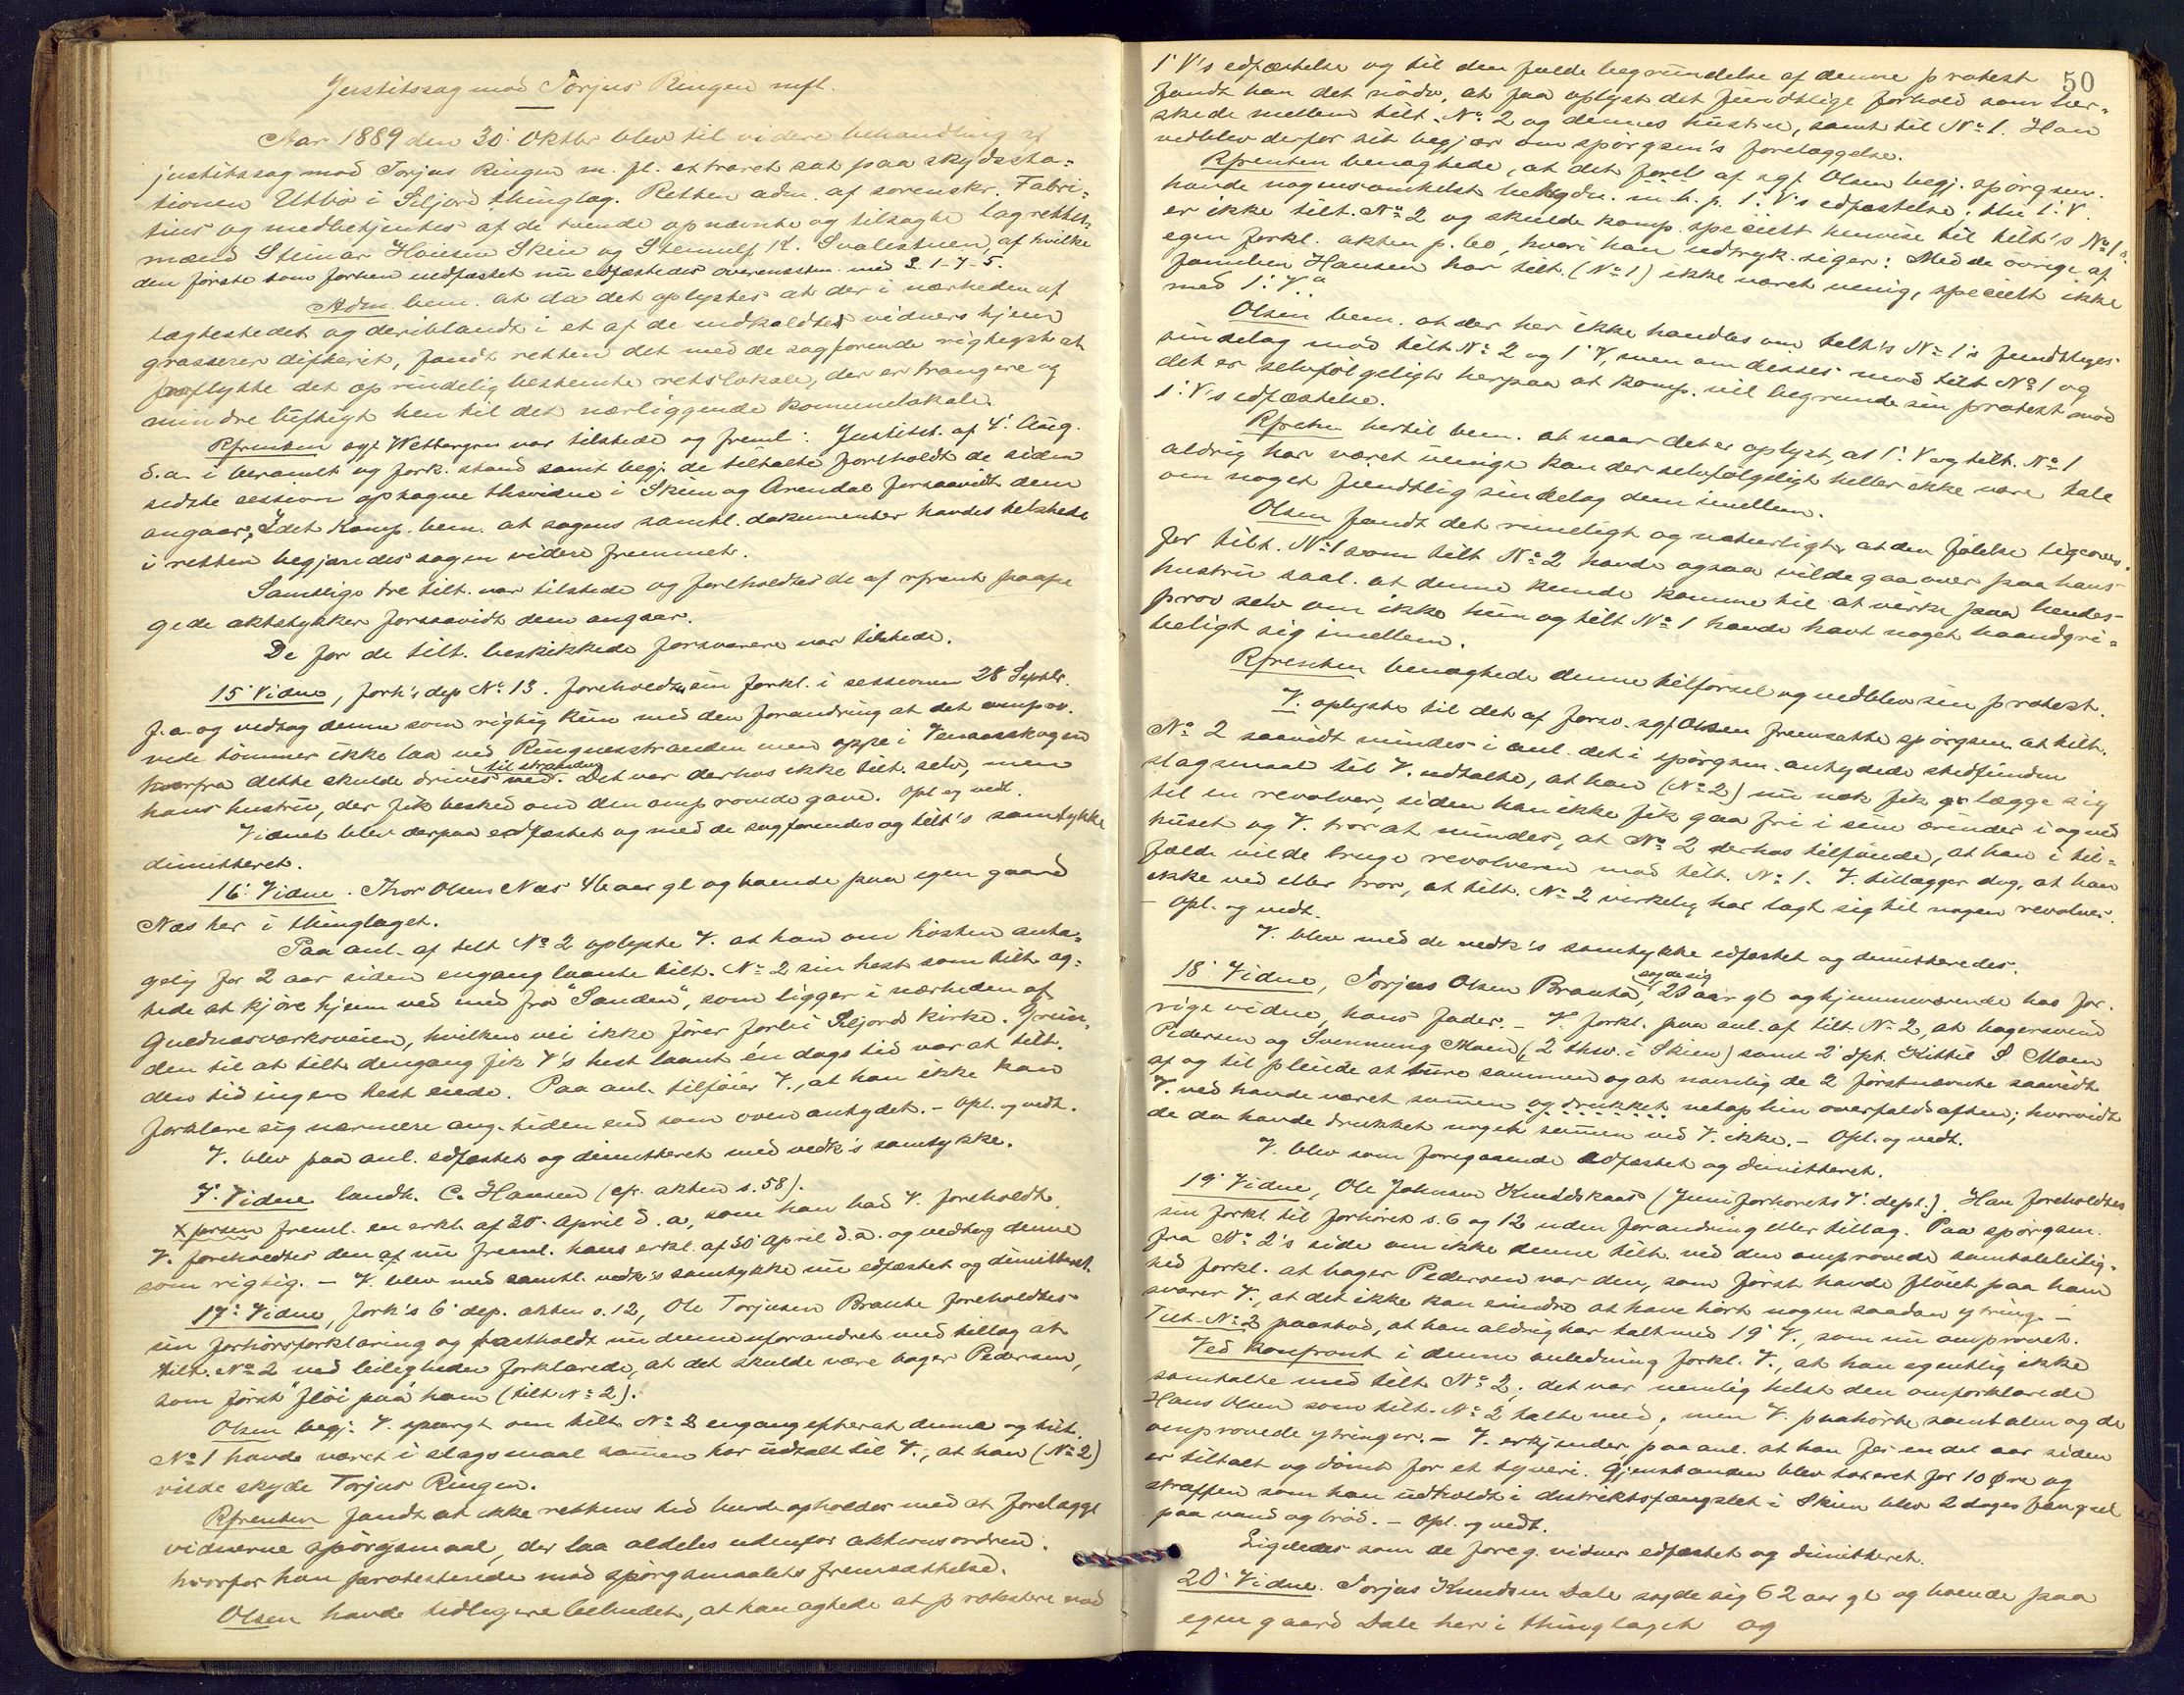 Justitssag mod Torjus Ringen mfl.
Aar 1889 den 30. Oktbr blev til videre behandling af
justitssag mod Torjus Ringen m. fl. extraret sat paa skydssta-
tionen Utbø i Siljord thinglag. Retten adm. af sorenskr. Fabri-
tius og medbetjentes af de tvende opnævnte og tilsagte lagrettes-
mænd Steinar Hansen Skien og Stenulf K. Svalestuen, af hvilke
den første som forhen uedfæstet nu edfæstedes overensstm. med L 1-7-5.
Adm. bem. at da det oplystes at der i nærheden af
tægtestedet og deriblandt i et af de indkaldte vidners hjem
grasserer difterit, fandt retten det med de sagførende rigtigst at
forflytte det oprindelig bestemte retslokale, der er trangere og
mindre luftigt hen til det nærliggende kommunelokale.
Rfrenten sgf Wettergren var tilstede og freml: Justitst. af 4. Aug.
d.a. i beramet og fork. stand samt begj. de tiltalte foreholdt de siden
sidste session optagne thsvidne i Skien og Arendal forsaavidt dem
angaar; Idet Komp. bem. at sagens samtl. dokumenter havdes tilstede
i retten begjæredes sagen videre fremmet.
Samtlige tre tilt. var tilstede og foreholdtes de af rfrent paape
gede aktstykker forsaavidt dem angaar.
De for de tilt. beskikkede forsvarere var tilstede.
15. Vidne, forh's dep No 13. foreholdtes sin forkl. i sessionen 28 Septbr.
f.a. og vedtog denne som rigtig kun med den forandring at det ompro-
vede tømmer ikke laa ved Ringnesstranden men oppe i Venaasskogen
hvorfra dette skulde drives til stranden ned. Det var derhos ikke tilt. selv, men
hans hustru, der fik besked om den omprovede gave. Opl og vedt.
Vidnet blev derpaa edfæstet og med de sagførendes og tilt's samtykke
dimitteret.
16. Vidne. Thor Olsen Næs 46 aar gl og boende paa egen gaard
Næs her i thinglaget.
Paa anl. af tilt No 2 oplyste V. at han om høsten anta-
gelig for 2 aar siden engang laante tilt. No 2 sin hest som tilt ag-
tede at kjøre hjem ved med fra "Sanden", som ligger i nærheden af
Guldnæsværksveien, hvilken vei ikke fører forbi Siljord kirke. Grun-
den til at tilt. dengang fik V's hest laant én dags tid var at tilt.
den tid ingen hest eiede. Paa anl. tilføier V., at han ikke kan
forklare sig nærmere ang. tiden end som oven antydet. – Opl. og vedt.
V. blev paa anl. edfæstet og dimitteret med vedk's samtykke.
7. Vidne landh. C. Hansen (cfr. akten s. 58).
freml. en erkl. af 30. April d.a, som han bad V. foreholdt.
V. foreholdtes den af nu freml. hans erkl. af 30 April d.a. og vedtog denne
som rigtig. – V. blev med samtl. vedk's samtykke nu edfæstet og dimitteret.
17. Vidne, fork's 6. dep. akten s. 12, Ole Torjusen Brauta foreholdtes
sin forhørsforklaring og fastholdt nu denne uforandret med tillæg at
tilt. No 2 ved leiligheden forklarede, at det skulde være bager Pedersen,
som først "fløi paa" ham (tilt No 2).
Olsen begj. V. spurgt om tilt No 2 engang efterat denne og tilt.
No 1 havde været i slagsmaal sammen har udtalt til V., at han (No 2)
vilde skyde Torjus Ringen.
Rfrenten fandt at ikke rettens tid burde opholdes med at forelægge
vidnerne spørgsmaal, der laa aldeles udenfor aktionsordren.
hvorfor han protesterede mod spørgsmaalets fremsættelse.
Olsen havde tidligere bebudet, at han agtede at protestere mod
50
1. V's edfæstelse og til den fulde begrundelse af denne protest
fandt han det nødv. at faa oplyst det fiendtlige forhold som her-
skede mellem tilt. No 2 og dennes hustru, samt til No 1. Han
vedblev derfor sit begjær om spørgsm's forelæggelse.
Rfrenten benægtede, at det forel. af sgf Olsen begj. spørgsm.
havde nogensomhelst betydn. m. h. p. 1. V's edfæstelse; thi 1. V.
er ikke tilt. No 2 og skulde komp. specielt henvise til tilt's No 1's
egen forkl. akten p. 60, hvori han udtryk. siger: Med de øvrige af
familien Hansen har tilt. (No 1) ikke været uenig, specielt ikke
med 1. V."
Olsen bem. at der her ikke handles om tilt's No 1's fiendtlige
sindelag mod tilt No 2 og 1 V, men om disses mod tilt No 1 og
det er selvfølgeligt herpaa at komp. vil begrunde sin protest mod
1. V's edfæstelse.
Rfrenten hertil bem. at naar det er oplyst, at 1. V og tilt. No 1
aldrig har været uenige kan der selvfølgeligt heller ikke være tale
om noget fiendtlig sindelag dem imellem.
Olsen fandt det rimeligt og naturligt, at den følelse ligeover-
for tilt. No 1 som tilt No 2 havde ogsaa vilde gaa over paa hans
hustru saal. at denne kunde komme til at virke paa hendes
prov selv om ikke hun og tilt No 1 havde havt noget haandgri-
beligt sig imellem.
Rfrenten benægtede denne tilførsel og vedblev sin protest.
V. oplyste til det af forsv. sgf Olsen fremsatte spørgsm. at tilt.
No 2 saavidt mindes i anl. det i spørgsm. antydede stedfundne
slagsmaal til V. udtalte, at han (No 2) nu nok fik lægge sig
til en revolver, siden han ikke fik gaa fri i sine ærinder i og ved
huset og V. tror at mindes, at No 2 derhos tilføiede, at han i til-
fælde vilde bruge revolveren mod tilt. No 1. V. tillægger dog, at han
ikke ved eller tror, at tilt. No 2 virkelig har lagt sig til nogen revolver.
– Opl. og vedt.
V. blev med de vedk's samtykke edfæstet og dimitteredes.
18. Vidne, Torjus Olsen Brauta, sagde sig 23 aar gl og hjemmeværende hos for-
rige vidne, hans fader. – V. forkl. paa anl. af tilt. No 2, at bagersvend
Pedersen og Svennung Moen (2 thsv. i Skien) samt 2. dpt. Kittil S. Moen
af og til pleiede at ture sammen og at navnlig de 2 førstnævnte saavidt
V. ved havde været sammen og drukket netop hin overfaldsaften; hvorvidt
de da havde drukket noget sammen ved V. ikke. – Opl. og vedt.
V. blev som foregaaende edfæstet og dimitteret.
19. Vidne, Ole Johnsen Knudskaas (Juniforhørets V. dept.). Han foreholdtes
sin forkl. til forhøret s. 6 og 12 uden forandring eller tillæg. Paa spørgsm.
fra No 2's side om ikke denne tilt. ved den omprovede samtaleleilig-
hed forkl. at bager Pedersen var den, som først havde fløiet paa ham
svarer V., at det ikke kan erindre at have hørt nogen saadan ytring. –
Tilt. No 2 paastod, at han aldrig har talt med 19. V., som nu omprovet.
Ved konfront. i denne anledning forkl. V., at han egentlig ikke
samtalte med tilt No 2; det var nemlig helst den omforklarede
Hans Olsen som tilt. No 2 talte med, men V. paahørte samtalen og de
omprovede ytringer. – V. erkjender paa anl. at han for en del aar siden
er tiltalt og dømt for et tyveri. Gjenstanden blev taxeret for 10 Øre og
straffen som han udholdt i distriktsfængslet i Skien blev 2 dages fængsel
paa vand og brød. – Opl. og vedt.
Ligeledes som de foreg. vidner edfæstet og dimitteret.
20. Vidne. Torjus Knudsen Dale sagde sig 62 aar gl og boende paa
egen gaard Dale her i thinglaget og